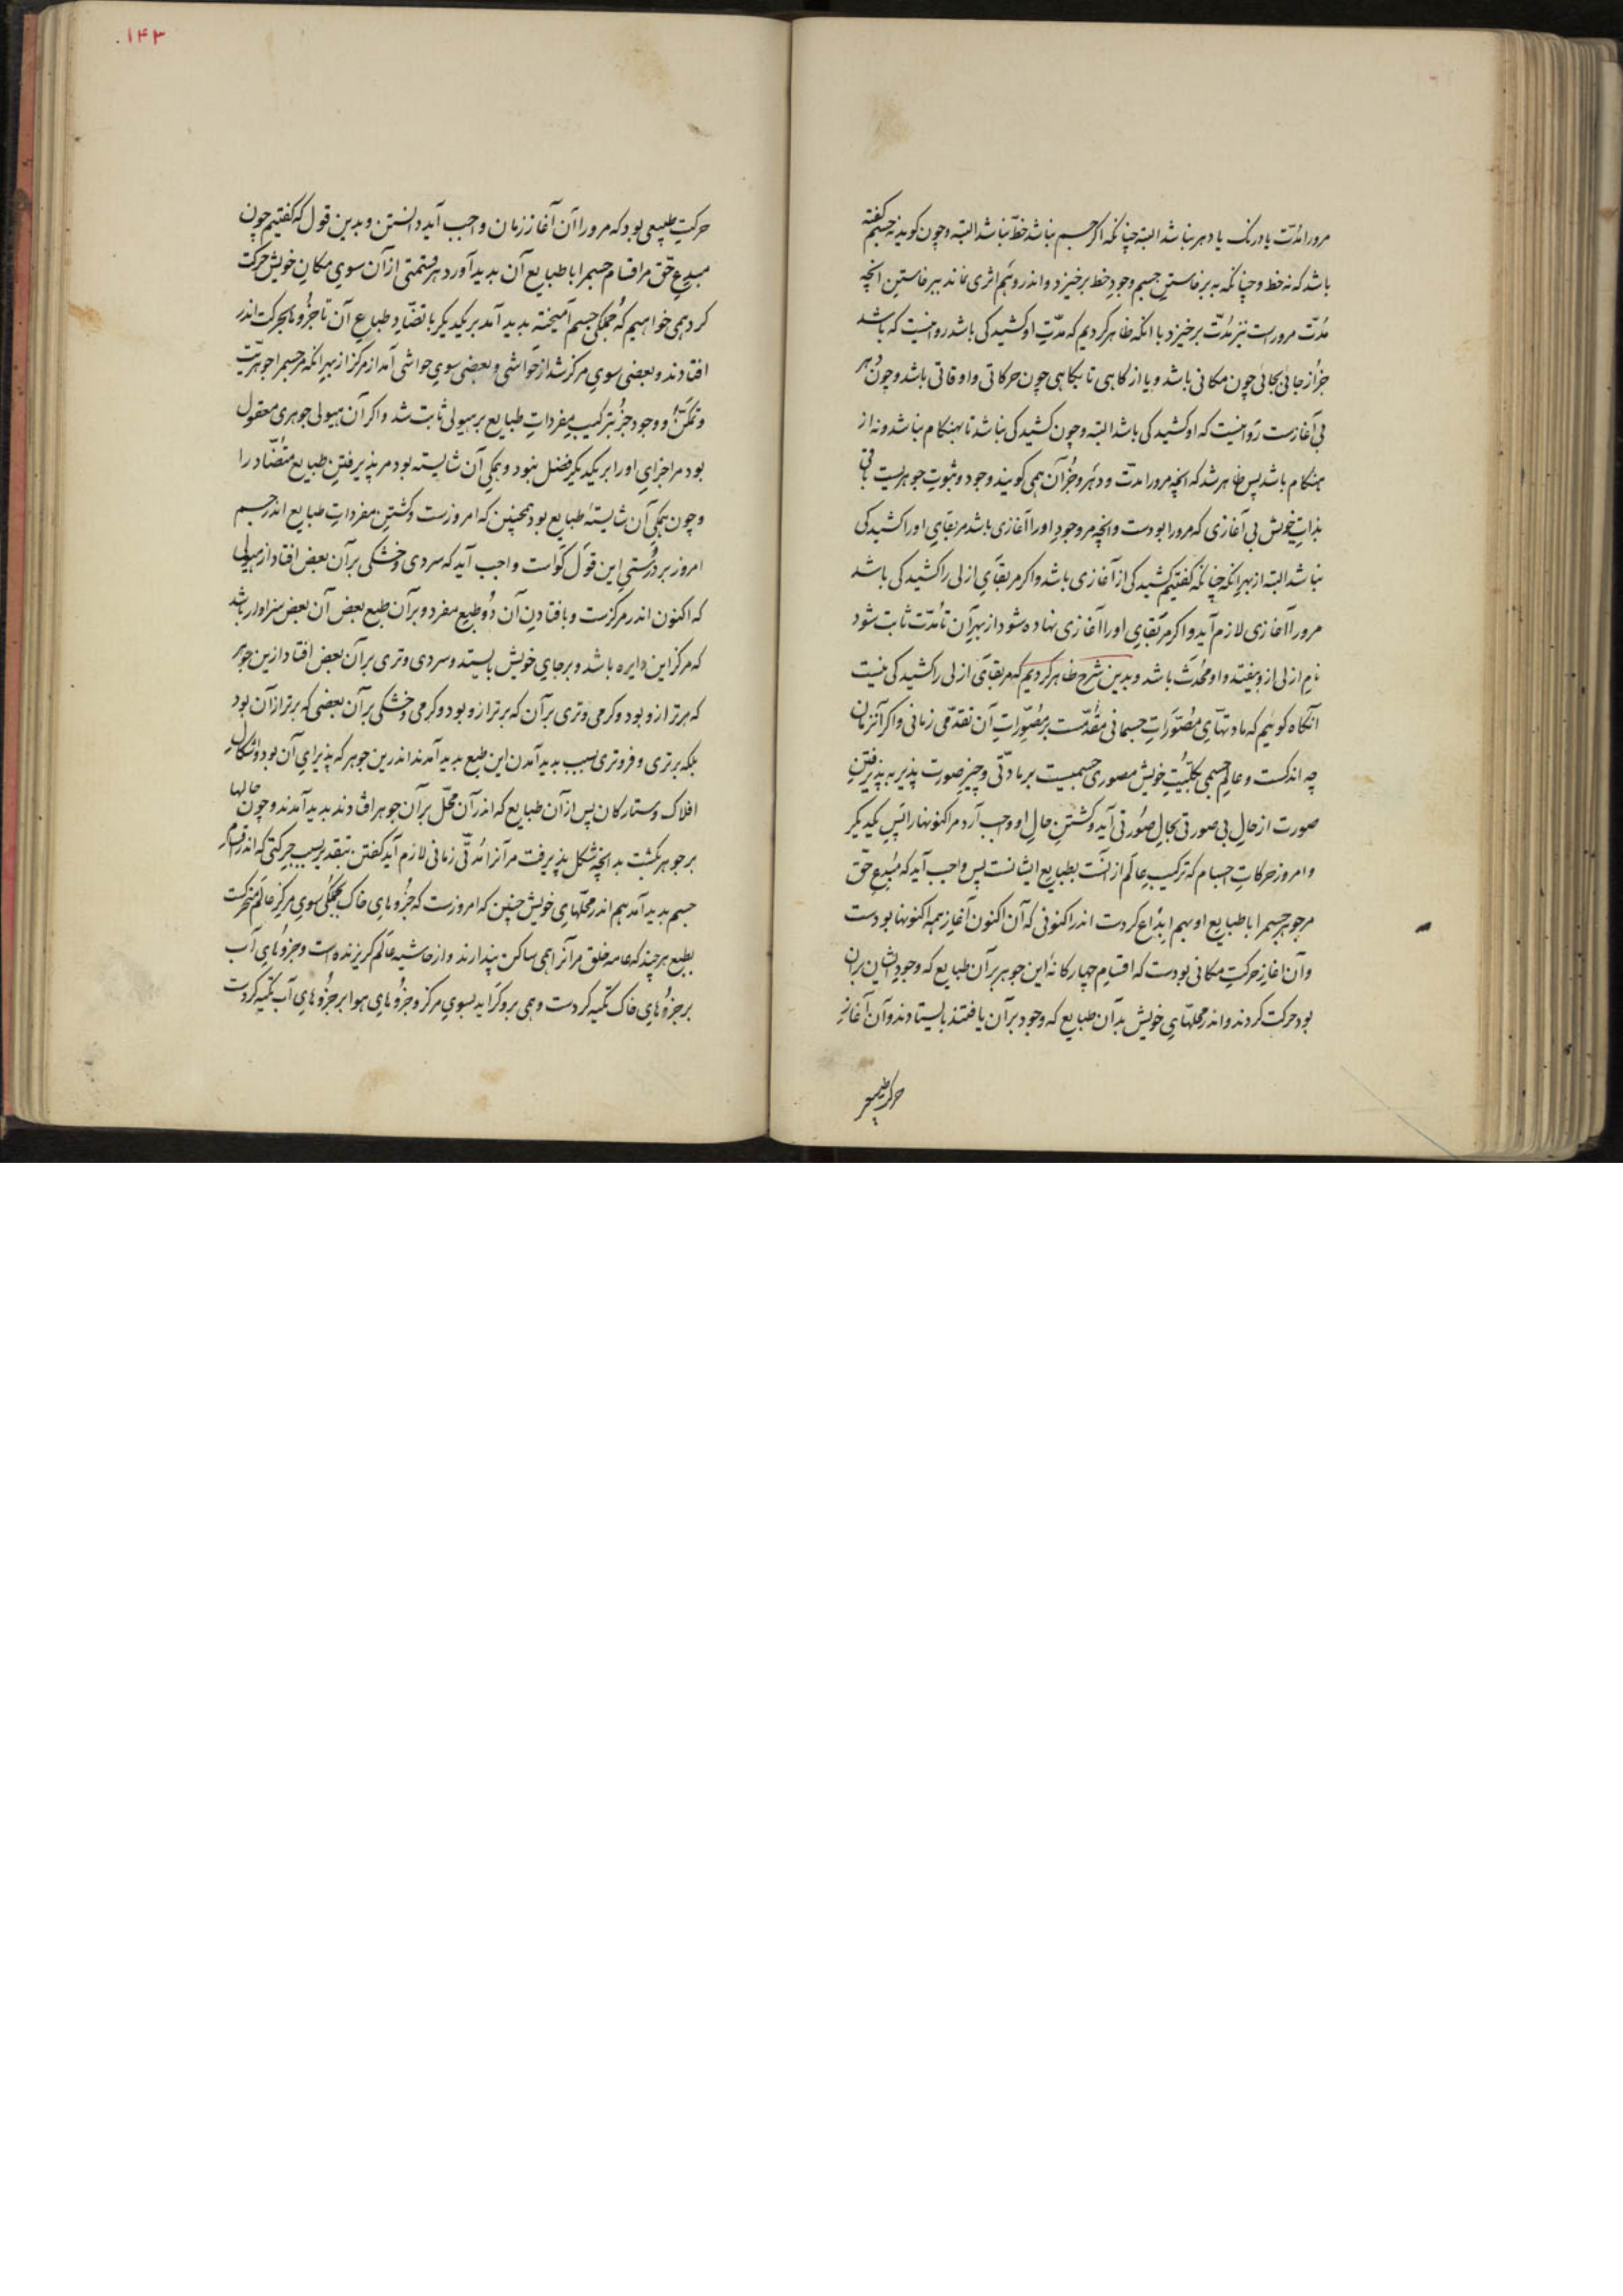 مرورا مُدّت یا درنک یا دهر نباشد البته چنانکه اکر جسم نباشد خطّ نباشد البته و چون کوید نه جسم کفته
باشد که نه خط و چنانکه به برخاستنِ جسم وجودِ خط برخیزد و اندر وهَم اثری نماند ببرخاستنِ آنچه
مُدّت مروراست نیز مُدّت برخیزد با انکه ظاهر کردیم که مدّت او کشیدکی باشد روا نیست که باشد
جز از جائی بجائی چون مکانی باشد و یا از کاهی تا بکاهی چون حرکاتی و اوقاتی باشد و چون دُهر
بی آغازست رَوا نیست که او کشیدکی باشد البته و چون کشیدکی نباشد تا بهنکام نباشد و نه از
هنکام باشد پس ظاهر شد که آنچه مرورا مدّت و دهَر و جُز آن همی کویند وجود و ثبوتِ جوهریست باقی
بذاتِ خویش بی آغازی که مرورا بودست و آنچه مر وجودِ اورا آغازی باشد مر بقایِ اورا کشیدکی
نباشد البته از بهرِ انکه چنانکه کفتیم کشیدکی از آغازی باشد و اکر مر بقایِ ازلی را کشیدکی باشد
مرورا آغازی لازم آید و اکر مر بقایِ اورا آغازی نهاده شود از بهرِ آن تا مُدّت ثابت شود
نامِ ازلی ازو بیفتد و او مُحدَث باشد و بدین شرح ظاهر کردیم که مر بقایَ ازلی را کشیدکی نیست
آنکاه کوئیم که مادتهایِ مُصَوَّراتِ جسمانی مقدّمست بر مُصَوِّراتِ آن تقدّمی زمانی و اکر آنزمان
چه اندکست و عالمِ جسمی بکلیّتِ خویش مصوری جسمیست بر مادتی و چیزِ صورت پذیر به پذیرفتنِ
صورت از حالِ بی صورتی بحالِ صُورتی آید و کشتنِ حالِ او واجب آرد مر اکنونها را پَسِ یکدیکر
و امروز حرکاتِ اجسام که ترکیبِ عالَم از آنست بطبایع ایشانست پس واجب آید که مُبدِعِ حقّ
مر جوهرِ جسم را با طبایع او بهم ابداع کردست اندر اکنونی که آن اکنون آغازِ همه اکنونها بودست
و آن آغازِ حرکتِ مکانی بودست که اقسامِ چهارکانهٔ این جوهر بر آن طبایع که وجودِ ایشان بر آن
بود حرکت کردند و اندر محلهّایِ خویش بدَان طبایع که وجود بر آن یافتند بایستادند و آن آغازِ
حرکت طبیعی
۱۴۳
حرکتِ طبیعی بود که مرورا آن آغازِ زمان واجب آید دانستن و بدین قول که کفتیم چون
مبدعِ حقّ مر اقسام جسم را با طبایعِ آن بدید آورد هر قسمتی از آن سوی مکانِ خویش حرکت
کرد همی خواهیم که جُملکی جسم آمیخته بدید آمد بر یکدیکر با تضّادِ طباعِ آن تا جزُوها بحرکت اندر
افتادند و بعضی سوی مرکز شد از حواشی و بعضی سوی حواشی آمد از مرکز از بهرِ انکه مر جسم را جوهریّت
و تمکّن و وجود جز بترکیبِ مفرداتِ طبایع بر هیولی ثابت نشد و اکر آن هیولی جوهری معقول
بود مر اجزایِ اورا بر یکدیکر فضل نبود و همکیِ آن شایسته بود مر پذیرفتنِ طبایع متضّاد را
و چون همکیِ آن شایستهٔ طبایع بود همچنین که امروزست و کشتنِ مفرداتِ طبایع اندر جسم
امروز بر دُرستیِ این قول کواست واجب آید که سردی و خشکی بر آن بعض افتاد از هیولی
که اکنون اندر مرکزست و بافتادنِ آن دُو طبعِ مفرد و بر آن طبع بعض آن بعض سزاوار باشد
که مرکزِ این دایره باشد و بر جایِ خویش بایستد و سردی و تری بر آن بعض افتاد ازین جوهر
که برتر ازو بود و کرمی و تری بر آن که برتر ازو بود و کرمی و خشکی بر آن بعضی که برتر از آن بود
بلکه برتری و فروتری بسببِ بدید آمدن این طبع بدید آمدند اندرین جوهر که پذیرایِ آن بود و اشکالِ
افلاک و ستارکان پس از آن طبایع که اندر آن محلّ بر آن جوهر افتادند بدید آمدند و چون حالها
بر جوهر بکشت بدانچه شکل پذیرفت مر آنرا مُدّتی زمانی لازم آید کفتن بتقدیر بسببِ حرکتی که اندر اقسامِ
جسم بدید آمد هم اندر محلّهایِ خویش چنین که امروزست که جزُوهای خاک بجملکی سوی مرکزِ عالَم متحرکت
بطبع هر چند که عامهٔ خلق مر آنرا همی ساکن پندارند و از حاشیهٔ عالَم کریزنده است و جزوهایِ آب
بر جزُوهایِ خاک تکیه کردست و همی برو کراید بسویِ مرکز و جزُوهای هوا بر جزُوهایِ آب تکیه کردست